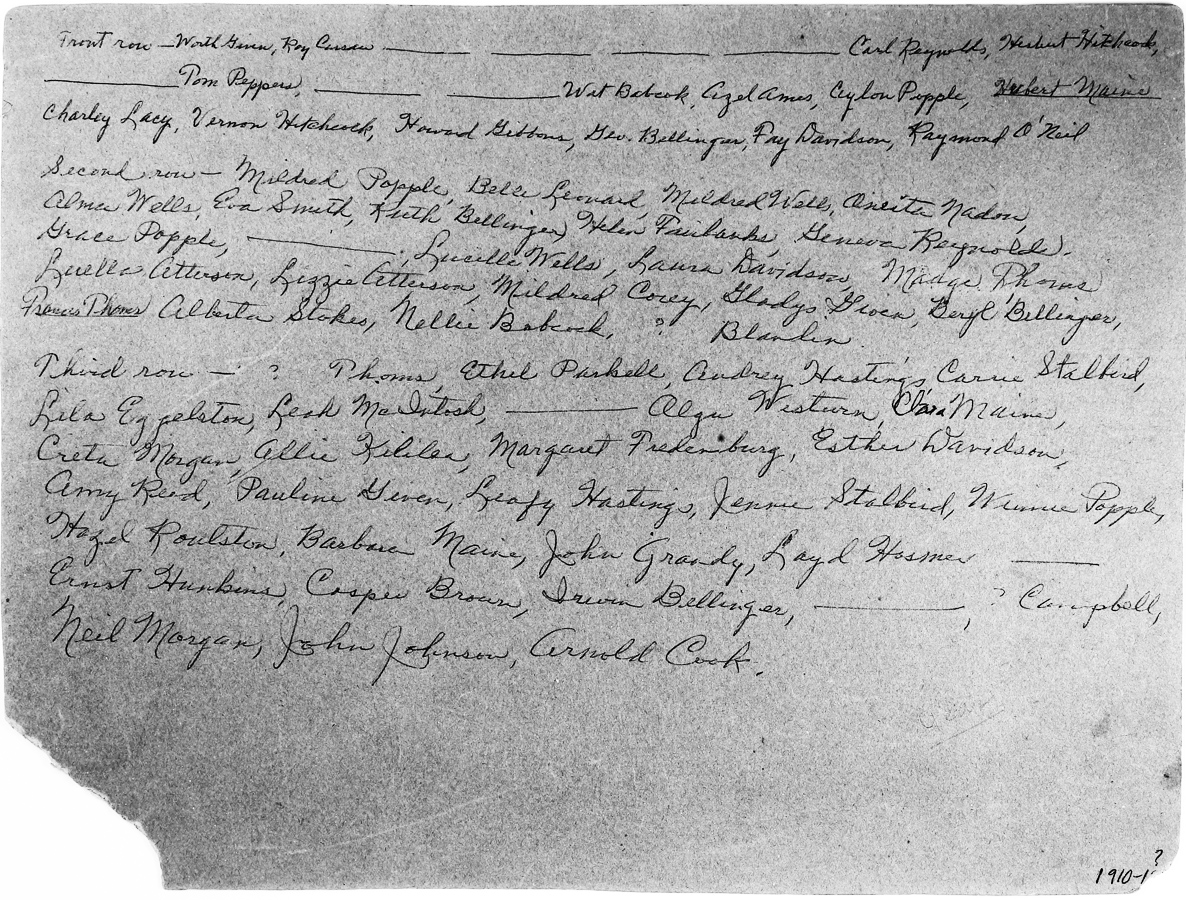 Front row — Worth Given, Roy Cursaw ——— ——— ——— ——— Carl Reynolds, Herbert Hitchcock,
——— Tom Peppers, ——— ——— Wat Babcock, Azel Ames, Ceylon Popple, Hubert Maine
Charley Lacy, Vernon Hitchcock, Howard Gibbons, Geo. Bellinger, Fay Davidson, Raymond O'Neil
Second row — Mildred Popple, Belle Leonard, Mildred Wells, Oneita Nadon,
Alma Wells, Eva Smith, Ruth Bellinger, Helen Fairbanks, Geneva Reynolds.
Grace Popple, ———, Lucille Wells, Laura Davidson, Madge Phoms
Luella Atterson, Lizzie Atterson, Mildred Corey, Gladys Given, Beryl Bellinger,
Francis Phoms Alberta Stokes, Nellie Babcock, ? Blanden
Third row — ? Phoms, Ethel Parkell, Audrey Hastings, Carrie Stalbird,
Lila Eggelston, Leah McIntosh, ——— Alga Western, Clara Maine,
Creta Morgan, Allie Kililea, Margaret Fredenburg, Esther Davidson,
Amy Reed, Pauline Given, Leafy Hastings, Jennie Stalbird, Winnie Popple,
Hazel Roulston, Barbara Maine, John Grandy, Layd Hosmer ———
Ernst Hunkins, Casper Brown, Irwin Bellinger, ———, ? Campbell,
Neil Morgan, John Johnson, Arnold Cook.
?
1910-1